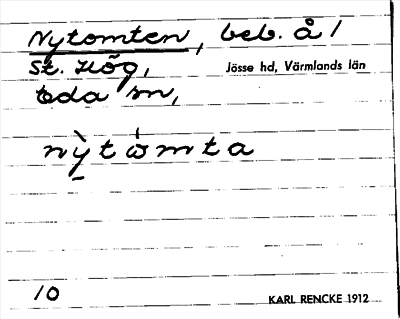 Nytomten, beb. å /
St. Hög, Jösse hd, Värmlands län
Eda sn,
nỳ̱tómta
10 KARL RENCKE 1912